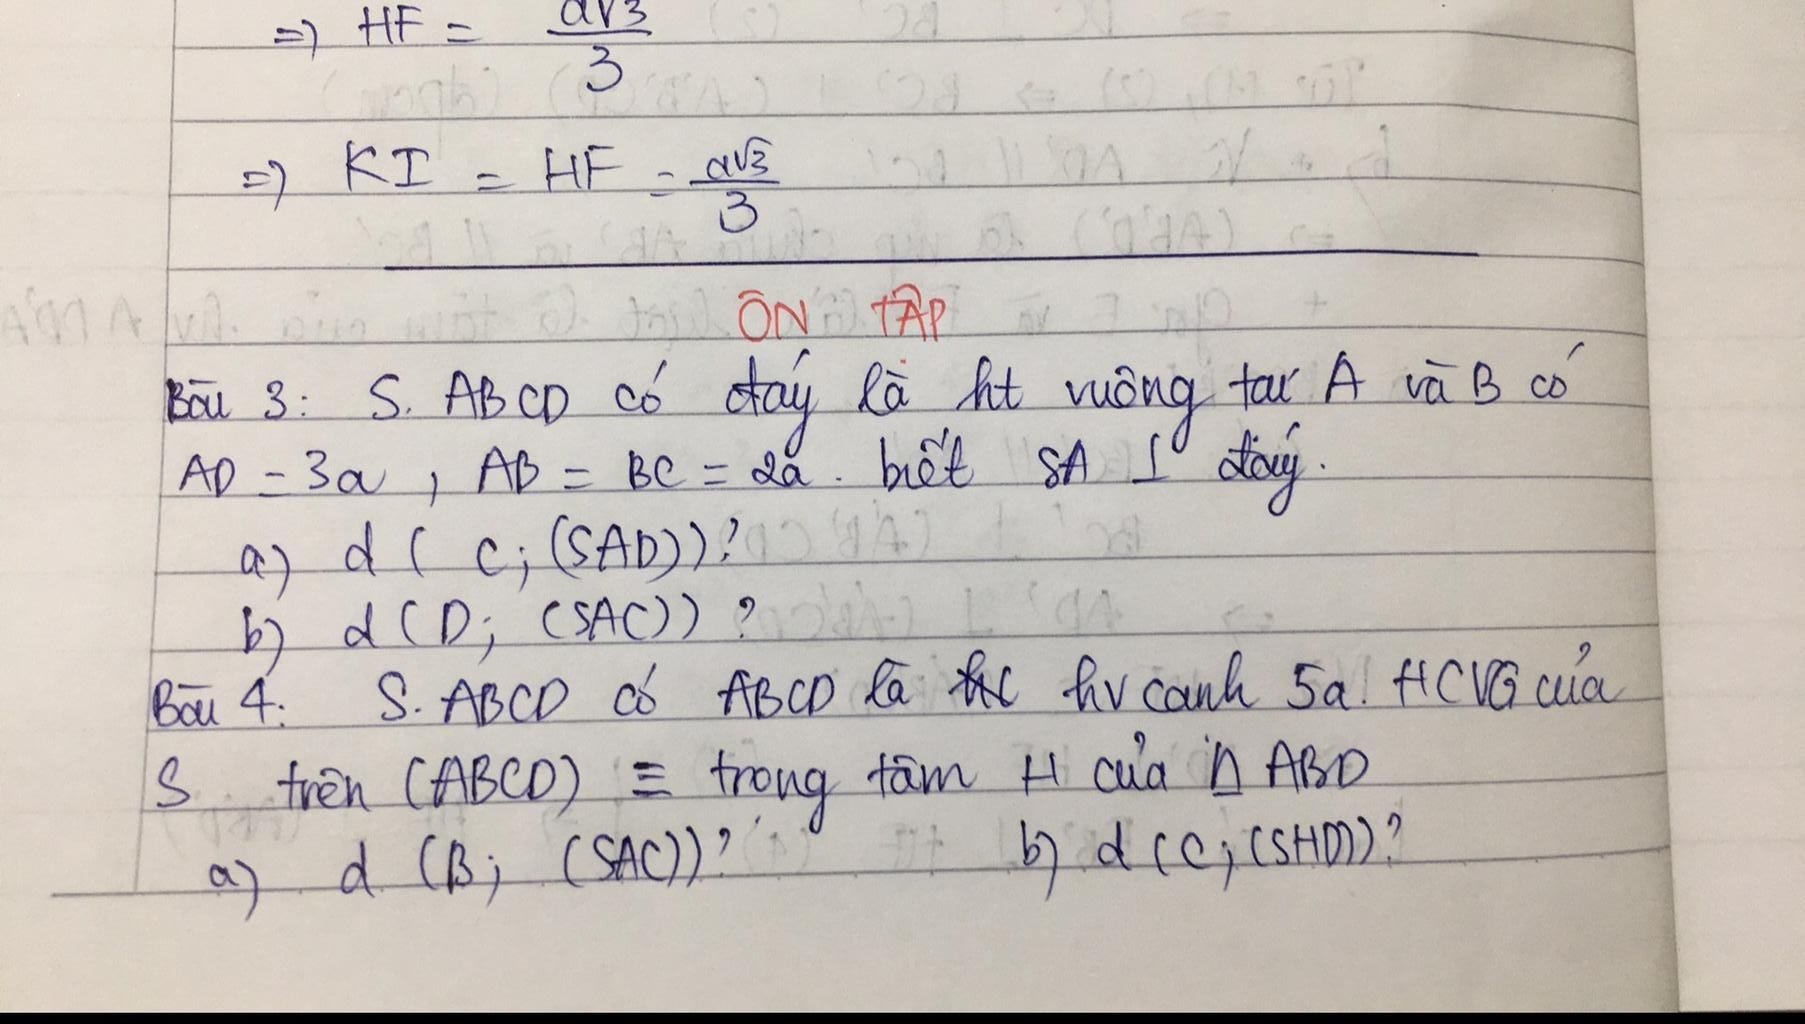 => HF = a√3/3
=> KI = HF = a√3/3
ÔN TẬP
Bài 3: S.ABCD có đáy là ht vuông tại A và B có
AD = 3a, AB = BC = 2a. biết SA ⊥ đáy.
a) d(C; (SAD))?
b) d(D; (SAC))?
Bài 4: S.ABCD có ABCD là hv cạnh 5a. HCVG của
S trên (ABCD) ≡ trọng tâm H của Δ ABD
a) d(B; (SAC))? b) d(C; (SHD))?